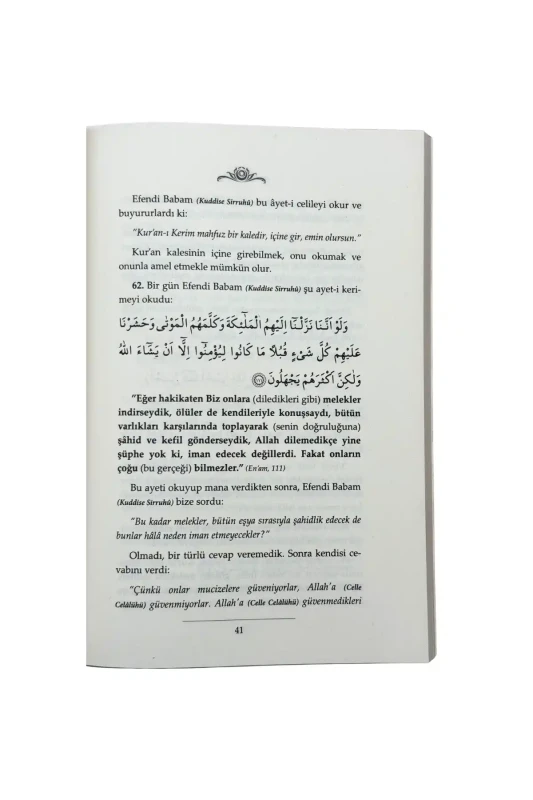 Efendi Babam (Kuddise Sirruhû) bu âyet-i celileyi okur ve
buyururlardı ki:
"Kur'an-ı Kerim mahfuz bir kaledir, içine gir, emin olursun."
Kur'an kalesinin içine girebilmek, onu okumak ve
onunla amel etmekle mümkün olur.
62. Bir gün Efendi Babam (Kuddise Sirruhû) şu ayet-i keri-
meyi okudu:
وَلَوْ اَنَّنَا نَزَّلْنَٓا اِلَيْهِمُ الْمَلٰٓئِكَةَ وَكَلَّمَهُمُ الْمَوْتٰى وَحَشَرْنَا
عَلَيْهِمْ كُلَّ شَيْءٍ قُبُلًا مَا كَانُوا لِيُؤْمِنُٓوا اِلَّٓا اَنْ يَشَٓاءَ اللّٰهُ
وَلٰكِنَّ اَكْثَرَهُمْ يَجْهَلُونَ ﴿١١١﴾
"Eğer hakikaten Biz onlara (diledikleri gibi) melekler
indirseydik, ölüler de kendileriyle konuşsaydı, bütün
varlıkları karşılarında toplayarak (senin doğruluğuna)
şâhid ve kefil gönderseydik, Allah dilemedikçe yine
şüphe yok ki, iman edecek değillerdi. Fakat onların
çoğu (bu gerçeği) bilmezler." (En'am, 111)
Bu ayeti okuyup mana verdikten sonra, Efendi Babam
(Kuddise Sirruhû) bize sordu:
"Bu kadar melekler, bütün eşya sırasıyla şahidlik edecek de
bunlar hâlâ neden iman etmeyecekler?"
Olmadı, bir türlü cevap veremedik. Sonra kendisi ce-
vabını verdi:
"Çünkü onlar mucizelere güveniyorlar, Allah'a (Celle
Celâlühû) güvenmiyorlar. Allah'a (Celle Celâlühû) güvenmedikleri
41